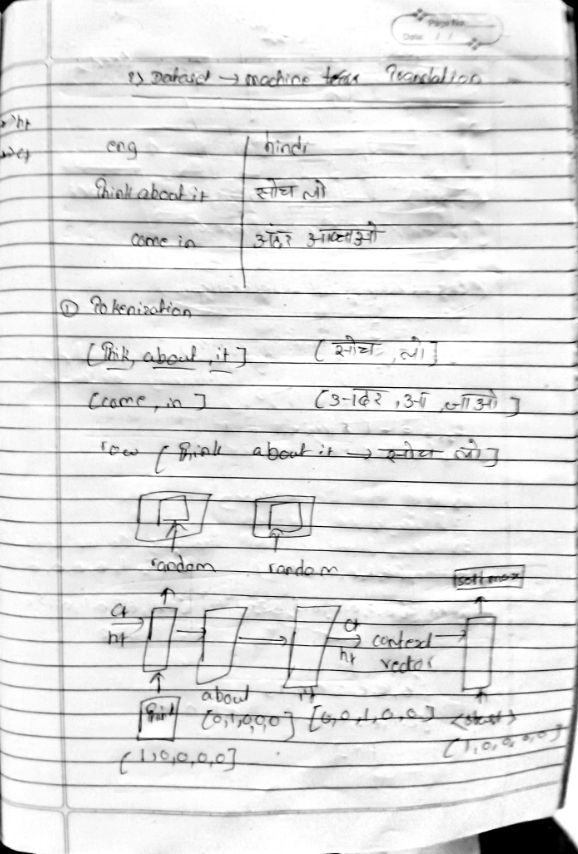 Page No.
Date: / /
2) Dataset → machine Translation
→ht
→ct
eng hindi
Think about it सोच लो
come in अंदर आ जाओ
① Tokenization
[Think, about, it] [सोच, लो]
[come, in] [अंदर, आ, जाओ]
row [Think about it → सोच लो]
random random
softmax
ct
ht
ct
ht
context
vector
Think about it <start>
[0,1,0,0,0] [0,0,1,0,0]
[1,0,0,0,0] [1,0,0,0,0]